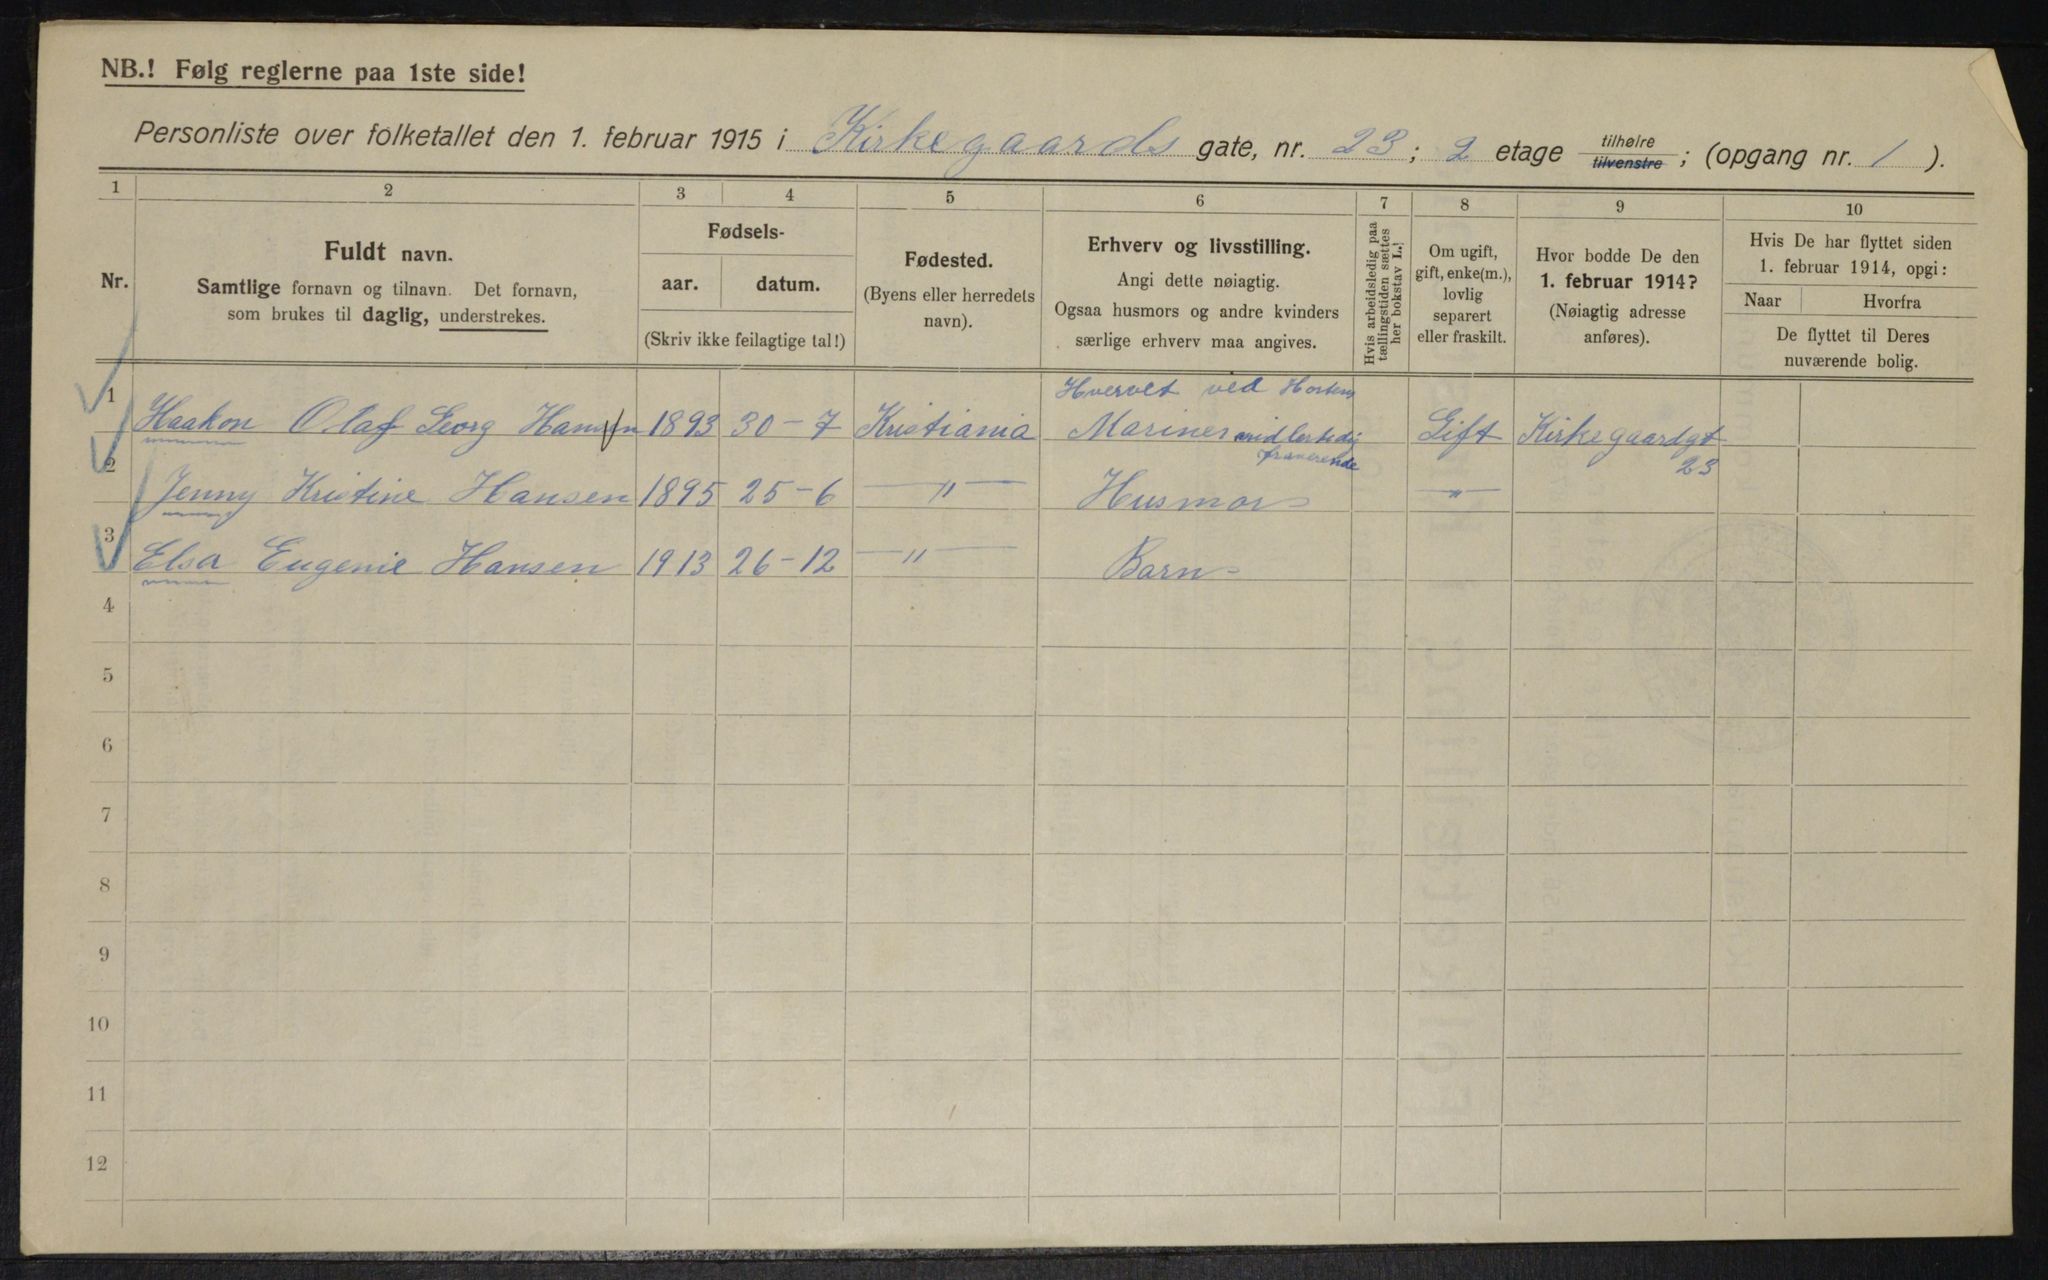 NB.! Følg reglerne paa 1ste side!
Personliste over folketallet den 1. februar 1915 i Kirkegaards gate, nr. 23; 2 etage tilhøire tilvenstre; (opgang nr. 1).
1 2 3 4 5 6 7 8 9 10
Nr.
Fuldt navn.
Samtlige fornavn og tilnavn. Det fornavn,
som brukes til daglig, understrekes.
Fødsels-
aar. datum.
(Skriv ikke feilagtige tal!)
Fødested.
(Byens eller herredets
navn).
Erhverv og livsstilling.
Angi dette nøiagtig.
Ogsaa husmors og andre kvinders
særlige erhverv maa angives.
Hvis arbeidsledig paa
tællingstiden sættes
her bokstav L.!
Om ugift,
gift, enke(m.),
lovlig
separert
eller fraskilt.
Hvor bodde De den
1. februar 1914?
(Nøiagtig adresse
anføres).
Hvis De har flyttet siden
1. februar 1914, opgi:
Naar Hvorfra
De flyttet til Deres
nuværende bolig.
Hvervet ved Horten
1 Haakon Olaf Georg Hansen 1893 30-7 Kristiania Mariner midlertidig Gift Kirkegaardgt
fraværende 23
2 Jenny Kristine Hansen 1895 25-6 — " — Husmor — " —
3 Elsa Eugenie Hansen 1913 26-12 — " — Barn
4
5
6
7
8
9
10
11
12